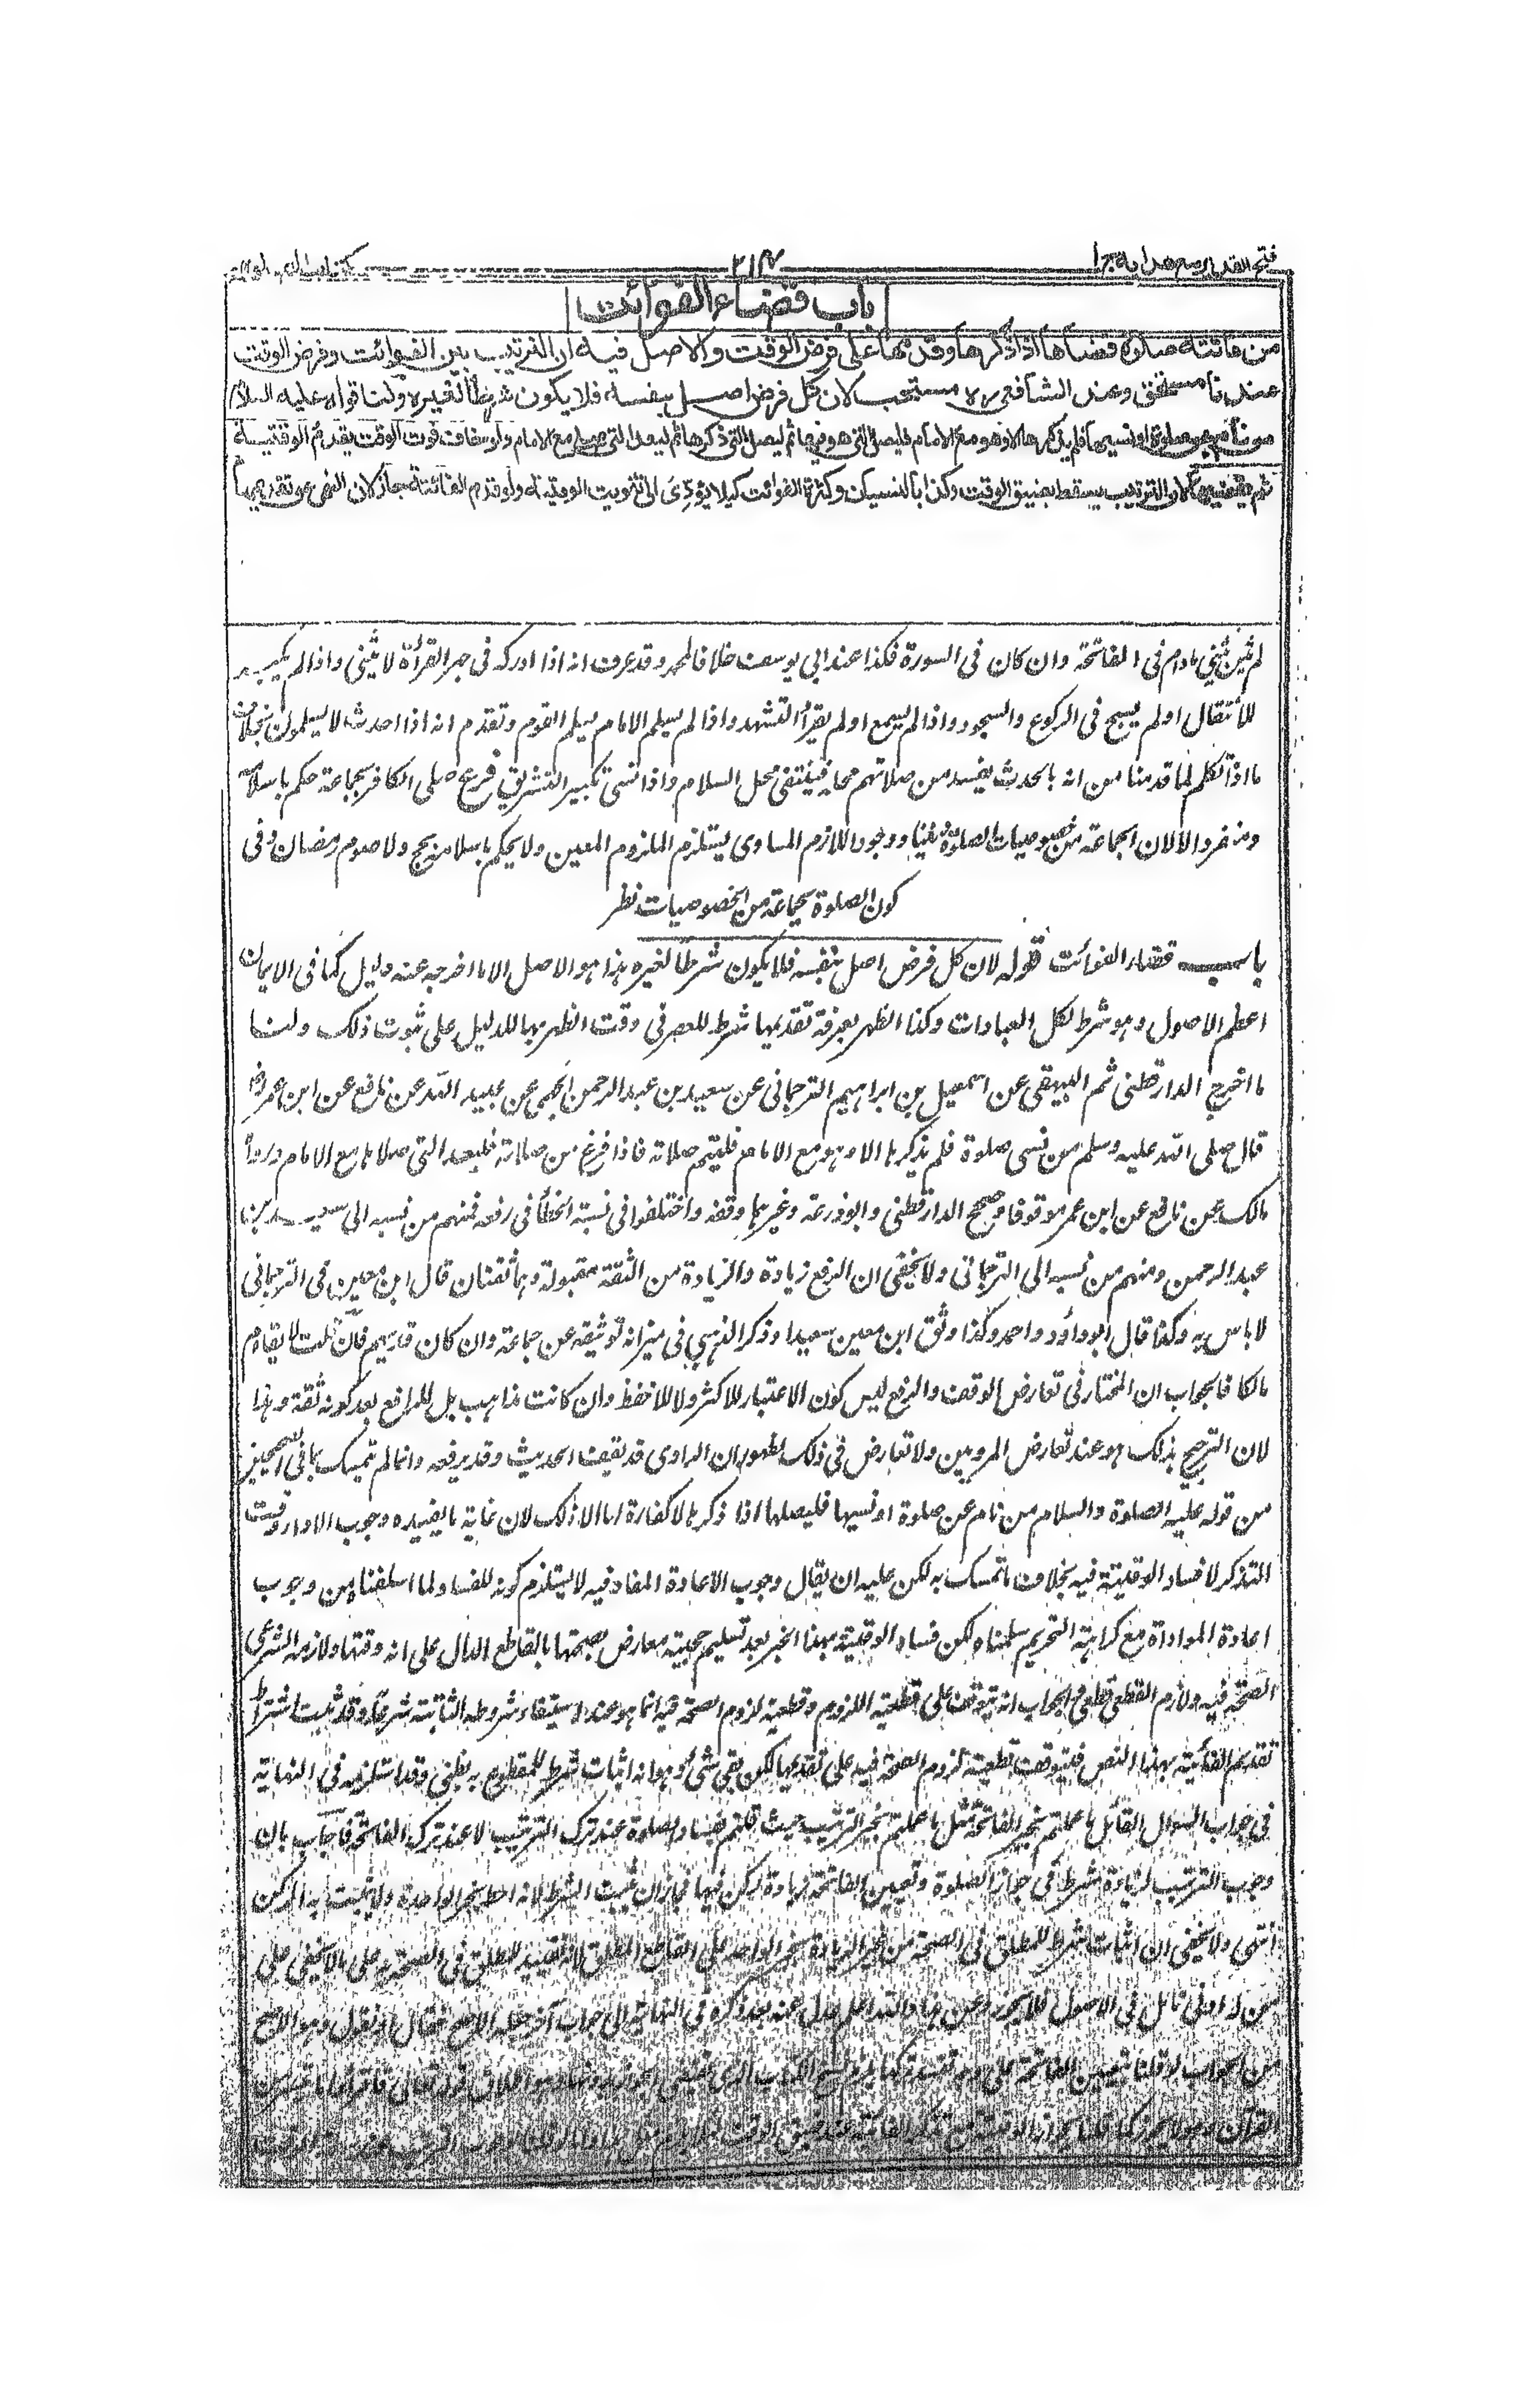 فتح القدير مع هداية ج ا
٢١٣
باب قضاء الفوائت
من فاتته صلوة قضاها اذا ذكرها وقدمها على فرض الوقت والاصل فيه ان الترتيب بين الفوائت وفرض الوقت
عندنا مستحق وعند الشافعى رح مستحب لان كل فرض اصل بنفسه فلا يكون شرطا لغيره ولنا قوله عليه السلام
من نام عن صلوة او نسيها فلم يذكرها الا وهو مع الامام فليصل التى هو فيها ثم ليصل التى ذكرها ثم ليعد التى صلى مع الامام ولو خاف فوت الوقت يقدم الوقتية
ثم يقضيها لان الترتيب يسقط بضيق الوقت وكذا بالنسيان وكثرة الفوائت كيلا يؤدى الى تفويت الوقتية ولو قدم الفائتة جاز لان النهى عن تقديمها
لم يثن يثنى مادام فى الفاتحة وان كان فى السورة فكذا عند ابى يوسف خلافا لمحمد وقد عرف انه اذا ادركه فى جهر القرأة لا يثنى واذا لم يكبر
للانتقال او لم يسبح فى الركوع والسجود واذا لم يسمع او لم يقرأ التشهد واذا لم يسلم الامام يسلم القوم وتقدم انه اذا احدث لا يسلمون بخلاف
ما اذا تكلم لما قدمنا من انه بالحدث يفسد من صلاتهم محله فينتفى محل السلام واذا نسى تكبير التشريق فرع صلى الكافر بجماعة حكم باسلامه
ومنفردا لا لان الجماعة من خصوصيات الصلوة فى ديننا ووجود اللازم المساوى يستلزم الملزوم المعين ولا يحكم باسلامه بحج ولا صوم رمضان وفى
كون الصلوة بجماعة من الخصوصيات نظر
باب قضاء الفوائت قوله لان كل فرض اصل بنفسه فلا يكون شرطا لغيره هذا هو الاصل الا ما اخرجه عنه دليل كما فى الايمان
اعظم الاصول وهو شرط لكل العبادات وكذا الظهر بعرفة تقديمها شرط للعصر فى وقت الظهر بها للدليل على ثبوت ذلك ولنا
ما اخرج الدارقطنى ثم البيهقى عن اسمعيل بن ابراهيم الترجمانى عن سعيد بن عبدالرحمن الجمحى عن عبيد الله عن نافع عن ابن عمر رض
قال صلى الله عليه وسلم من نسى صلوة فلم يذكرها الا وهو مع الامام فليتم صلاته فاذا فرغ من صلاته فليعد التى صلاها مع الامام ورواه
مالك عن نافع عن ابن عمر موقوفا وصحح الدارقطنى وابو زرعة وغيرهما وقفه واختلفوا فى نسبة الخطأ فى رفعه فمنهم من نسبه الى سعيد بن
عبدالرحمن ومنهم من نسبه الى الترجمانى ولا يخفى ان الرفع زيادة والزيادة من الثقة مقبولة وهما ثقتان قال ابن معين فى الترجمانى
لا باس به وكذا قال ابو داؤد واحمد وكذا وثق ابن معين سعيدا وذكر الذهبي فى ميزانه توثيقه عن جماعة وان كان قد يهم فان قلت لا يقاوم
مالكا فالجواب ان المختار فى تعارض الوقف والرفع ليس كون الاعتبار للاكثر ولا للاحفظ وان كانت مذاهب بل للرافع بعد كونه ثقة وهذا
لان الترجيح بذلك هو عند تعارض المرويين ولا تعارض فى ذلك لظهور ان الراوى قد يقف الحديث وقد يرفعه وانما لم يتمسك بما فى الصحيحين
من قوله عليه الصلوة والسلام من نام عن صلوة او نسيها فليصلها اذا ذكرها لا كفارة لها الا ذلك لان غاية ما يفيده وجوب الاداء وقت
التذكر لا فساد الوقتية فيه بخلاف ما تمسك به لكن عليه ان يقال وجوب الاعادة المفاد فيه لا يستلزم كونه للفساد لما اسلفناه من وجوب
اعادة المؤداة مع كراهة التحريم سلمناه لكن فساد الوقتية بهذا الخبر بعد تسليم حجيته معارض بصحتها بالقاطع الدال على انه وقتها ولازمه الشرعى
الصحة فيه ولازم القطعى قطعى والجواب انه يتوقف على قطعية اللزوم وقطعية لزوم الصحة فيه انما هو عند استيفاء شروطه الثابتة شرعا وقد ثبت اشتراط
تقديم الفائتة بهذا النص فيتوقف قطعية لزوم الصحة فيه على تقديمها لكن بقى شئ وهو انه اثبات شرط للمقطوع به بظنى وقد استلزمه فى النهاية
فى جواب السوال القائل ما عملتم بخبر الفاتحة مثل ما عملتم بخبر الترتيب حيث قلتم بفساد الصلوة عند ترك الترتيب لا عند ترك الفاتحة فاجاب بان
وجوب الترتيب لزيادة شرط فى جواز الصلوة وتعيين الفاتحة زيادة ركن فيها فجاز ان يثبت الشرط لانه احط بخبر الواحد ولا يثبت به الركن
انتهى ولا يخفى ان اثبات شرط للمطلق فى الصحة من غير الزيادة بخبر الواحد على القاطع المطلق لانه تقييد المطلق فى الصحة على ما لا يخفى على
من له ادنى تامل فى الاصول فلا يجوز وعن هذا والله اعلم عدل عنه بعد ذكره فى النهاية الى جواب آخر جعله الاصح فقال او نقول وهو الاصح
من الجواب لو قلنا بتعيين الفاتحة على وجه تفسد
القرآن